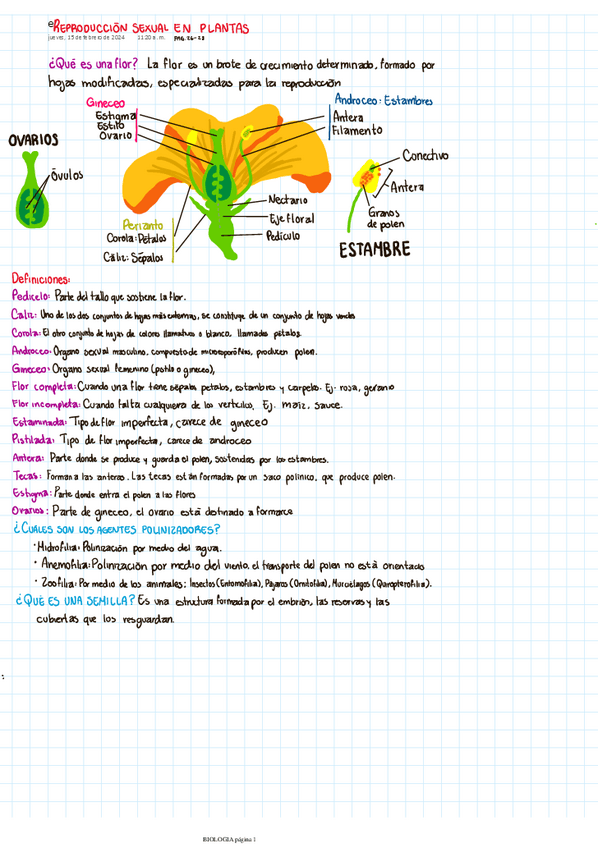 REPRODUCCIÓN SEXUAL EN PLANTAS
jueves, 15 de febrero de 2024 11:20 a. m. PAG. 26-28
¿Qué es una flor? La flor es un brote de crecimiento determinado, formado por
hojas modificadas, especializadas para la reproducción
Gineceo
Estigma
Estilo
Ovario
Androceo: Estambres
Antera
Filamento
OVARIOS
Óvulos
Conectivo
Antera
Granos
de polen
ESTAMBRE
Nectario
Eje floral
Pedículo
Perianto
Corola: Pétalos
Cáliz: Sépalos
Definiciones:
Pedicelo: Parte del tallo que sostiene la flor.
Caliz: Uno de los dos conjuntos de hojas más externas, se constituye de un conjunto de hojas verdes
Corola: El otro conjunto de hojas de colores llamativos o blanco, llamados pétalos.
Androceo: Organo sexual masculino, compuesto de microesporófilos, producen polen.
Gineceo: Organo sexual femenino (pistilo o gineceo),
Flor completa: Cuando una flor tiene sépalos petalos, estambres y carpelo. Ej. rosa, geranio
Flor incompleta: Cuando falta cualquiera de los verticilos, Ej. maíz, sauce.
Estaminada: Tipo de flor imperfecta, carece de gineceo
Pistilada: Tipo de flor imperfecta, carece de androceo
Antera: Parte donde se produce y guarda el polen, sostenidas por los estambres.
Tecas: Forman a las anteras. Las tecas están formadas por un saco polínico, que produce polen.
Estigma: Parte donde entra el polen a las flores
Ovarios: Parte de gineceo, el ovario está destinado a formarce
¿CUALES SON LOS AGENTES POLINIZADORES?
· Hidrofilia: Polinización por medio del agua.
· Anemofilia: Polinización por medio del viento, el transporte del polen no está orientado
· Zoofilia: Por medio de los animales: Insectos (Entomofilia), Pájaros (Ornitofilia), Murcielagos (Quiropterofilia).
¿QUÉ ES UNA SEMILLA? Es una estructura formada por el embrión, las reservas y las
cubiertas que los resguardan.
BIOLOGIA página 1